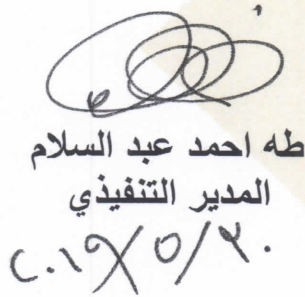 طه احمد عبد السلام
المدير التنفيذي
٢٠١٩/٥/٢٠